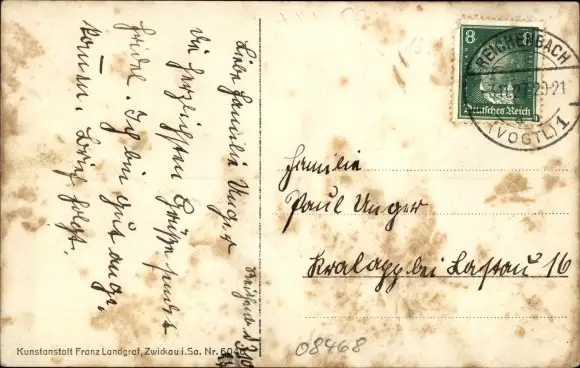 Liebe Familie Unger
die herzlichsten Grüße sendet
Frida. Ich bin gut ange-
kommen. Brief folgt.
8
8
Deutsches Reich
REICHENBACH
(VOGTL) 1
Familie
Paul Unger
Kralapp bei Lastau 16
Kunstanstalt Franz Landgraf, Zwickau i. Sa. Nr.
08468